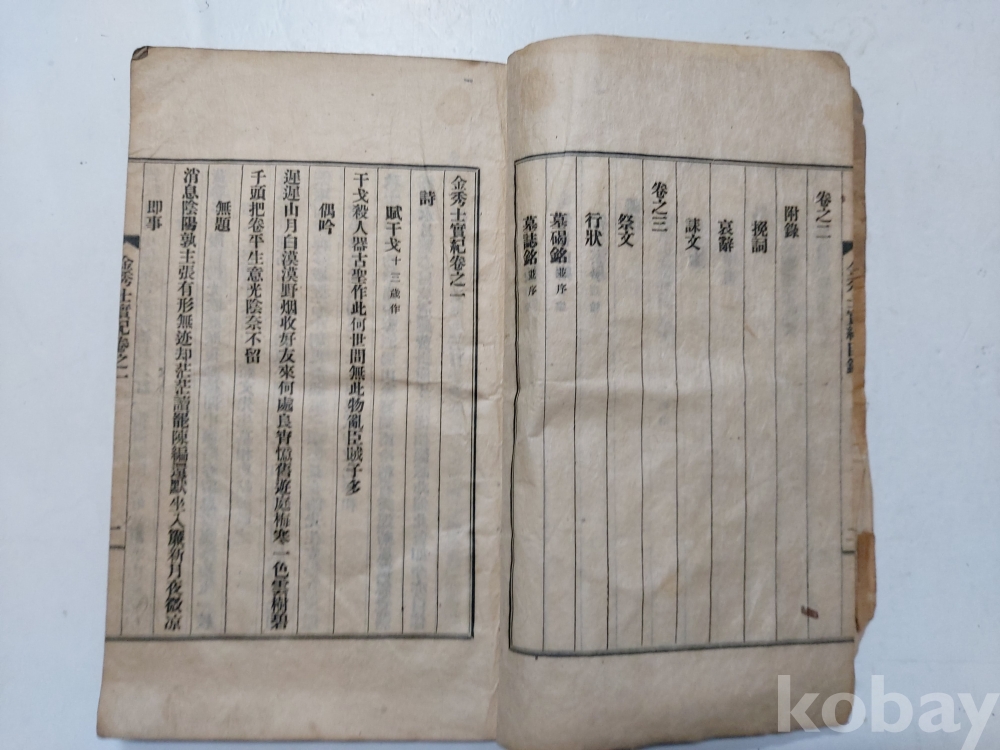 卷之二
附錄
挽詞
哀辭
誄文
卷之三
祭文
行狀
墓碣銘 並序
墓誌銘 並序
金秀士實記卷之一
詩
賦干戈 十三歲作
干戈殺人器古聖作此何世間無此物亂臣賊子多
偶吟
遲遲山月白漠漠野烟收好友來何處良宵憶舊遊庭梅寒一色雲樹碧
千頭把卷平生意光陰奈不留
無題
消息陰陽孰主張有形無迹却茫茫讀罷陳編還默坐入簾新月夜微凉
即事
金秀士實記卷之一
一
kobay